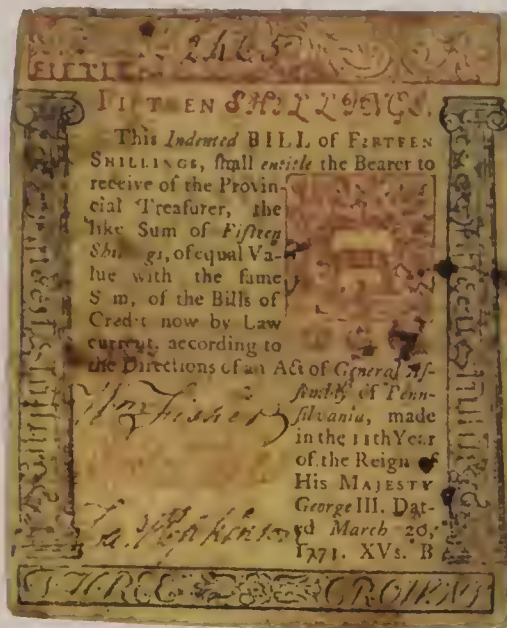 2465
FIFTEEN SHILLINGS.
This Indented BILL of FIFTEEN
SHILLINGS, ſhall entitle the Bearer to
receive of the Provin-
cial Treaſurer, the
like Sum of Fifteen
Shillings, of equal Va-
lue with the ſame
Sum, of the Bills of
Credit now by Law
current, according to
the Directions of an Act of General Aſ-
ſembly of Penn-
ſilvania, made
in the 11th Year
of the Reign of
His MAJESTY
George III. Dat-
ed March 20,
1771. XVs. B
Wm Fisher
THREE CROWNS